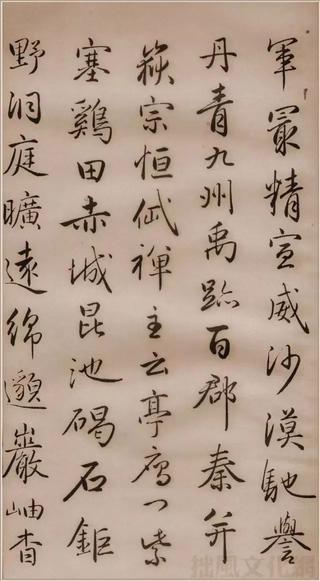 軍冣精宣威沙漠馳譽
丹青九州禹跡百郡秦并
嶽宗恒岱禪主云亭雁門紫
塞鷄田赤城昆池碣石鉅
野洞庭曠遠綿邈巖岫杳
拙風文化網